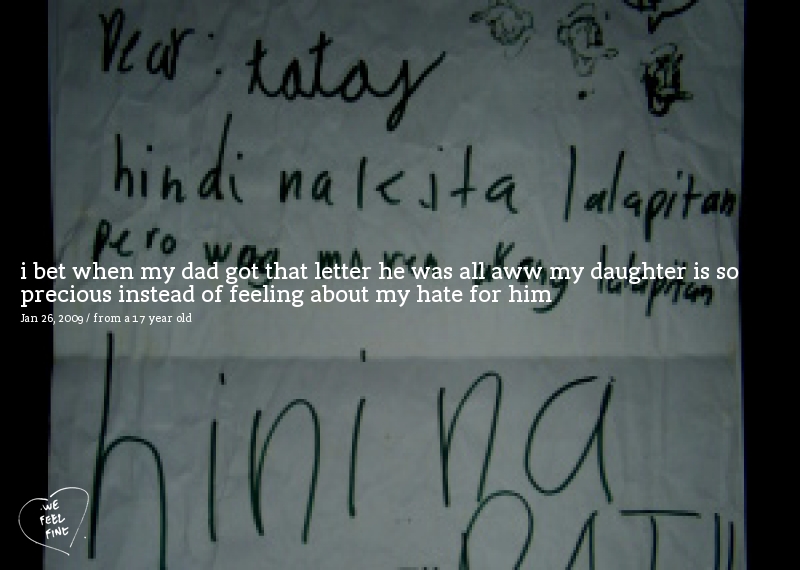 Dear: tatay
hindi na kita lalapitan
pero wag mo ren akong lalapitan
i bet when my dad got that letter he was all aww my daughter is so
precious instead of feeling about my hate for him
Jan 26, 2009 / from a 17 year old
hini na
WE
FEEL
FINE